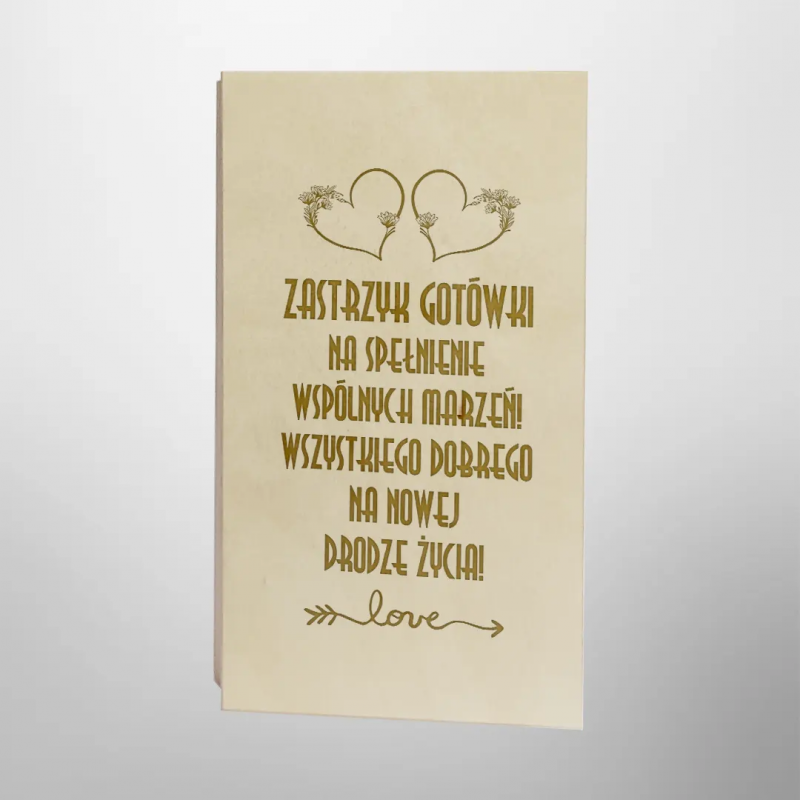 ZASTRZYK GOTÓWKI
NA SPEŁNIENIE
WSPÓLNYCH MARZEŃ!
WSZYSTKIEGO DOBREGO
NA NOWEJ
DRODZE ŻYCIA!
love